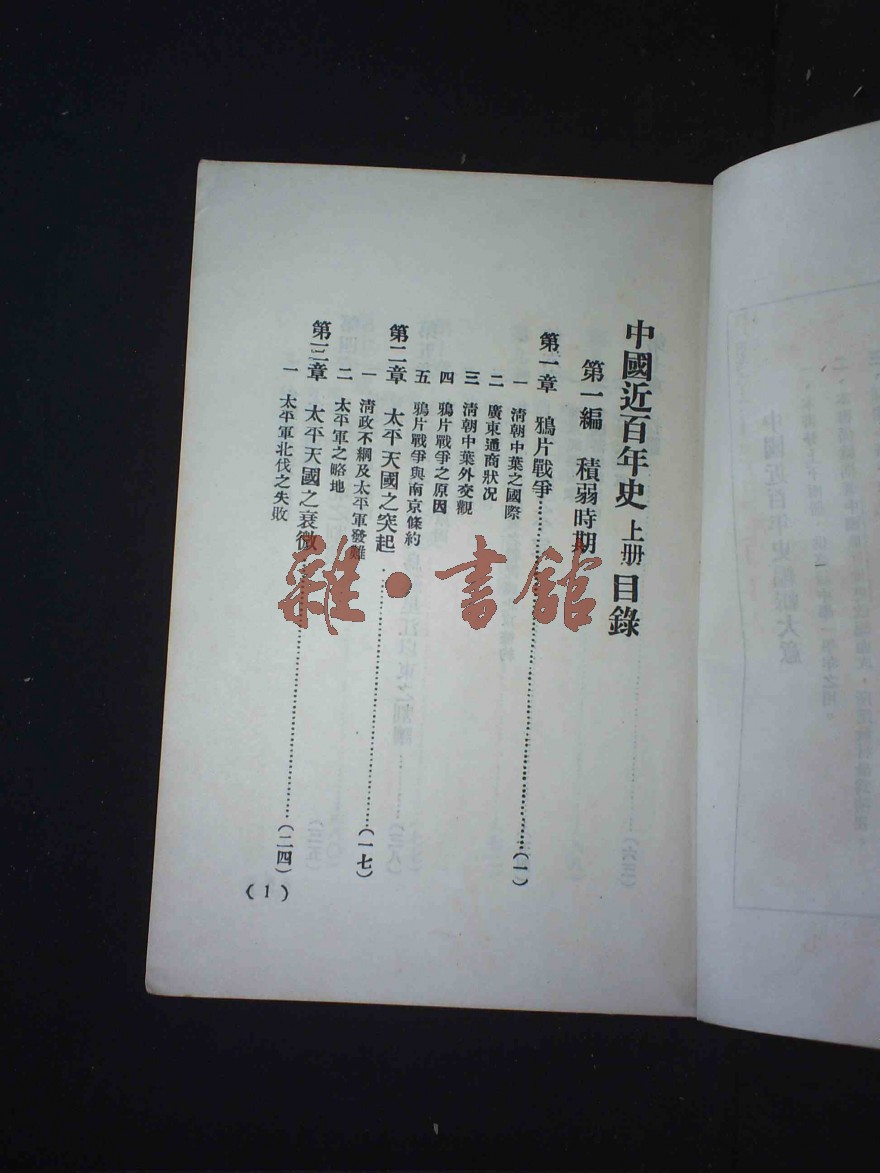 中國近百年史 上册 目錄
第一編 積弱時期
第一章 鴉片戰爭……(一)
一 清朝中葉之國際
二 廣東通商狀况
三 清朝中葉外交觀
四 鴉片戰爭之原因
五 鴉片戰爭與南京條約
第二章 太平天國之突起……(一七)
一 清政不綱及太平軍發難
二 太平軍之略地
第三章 太平天國之衰微……(二四)
一 太平軍北伐之失敗
(1)
雜·書館